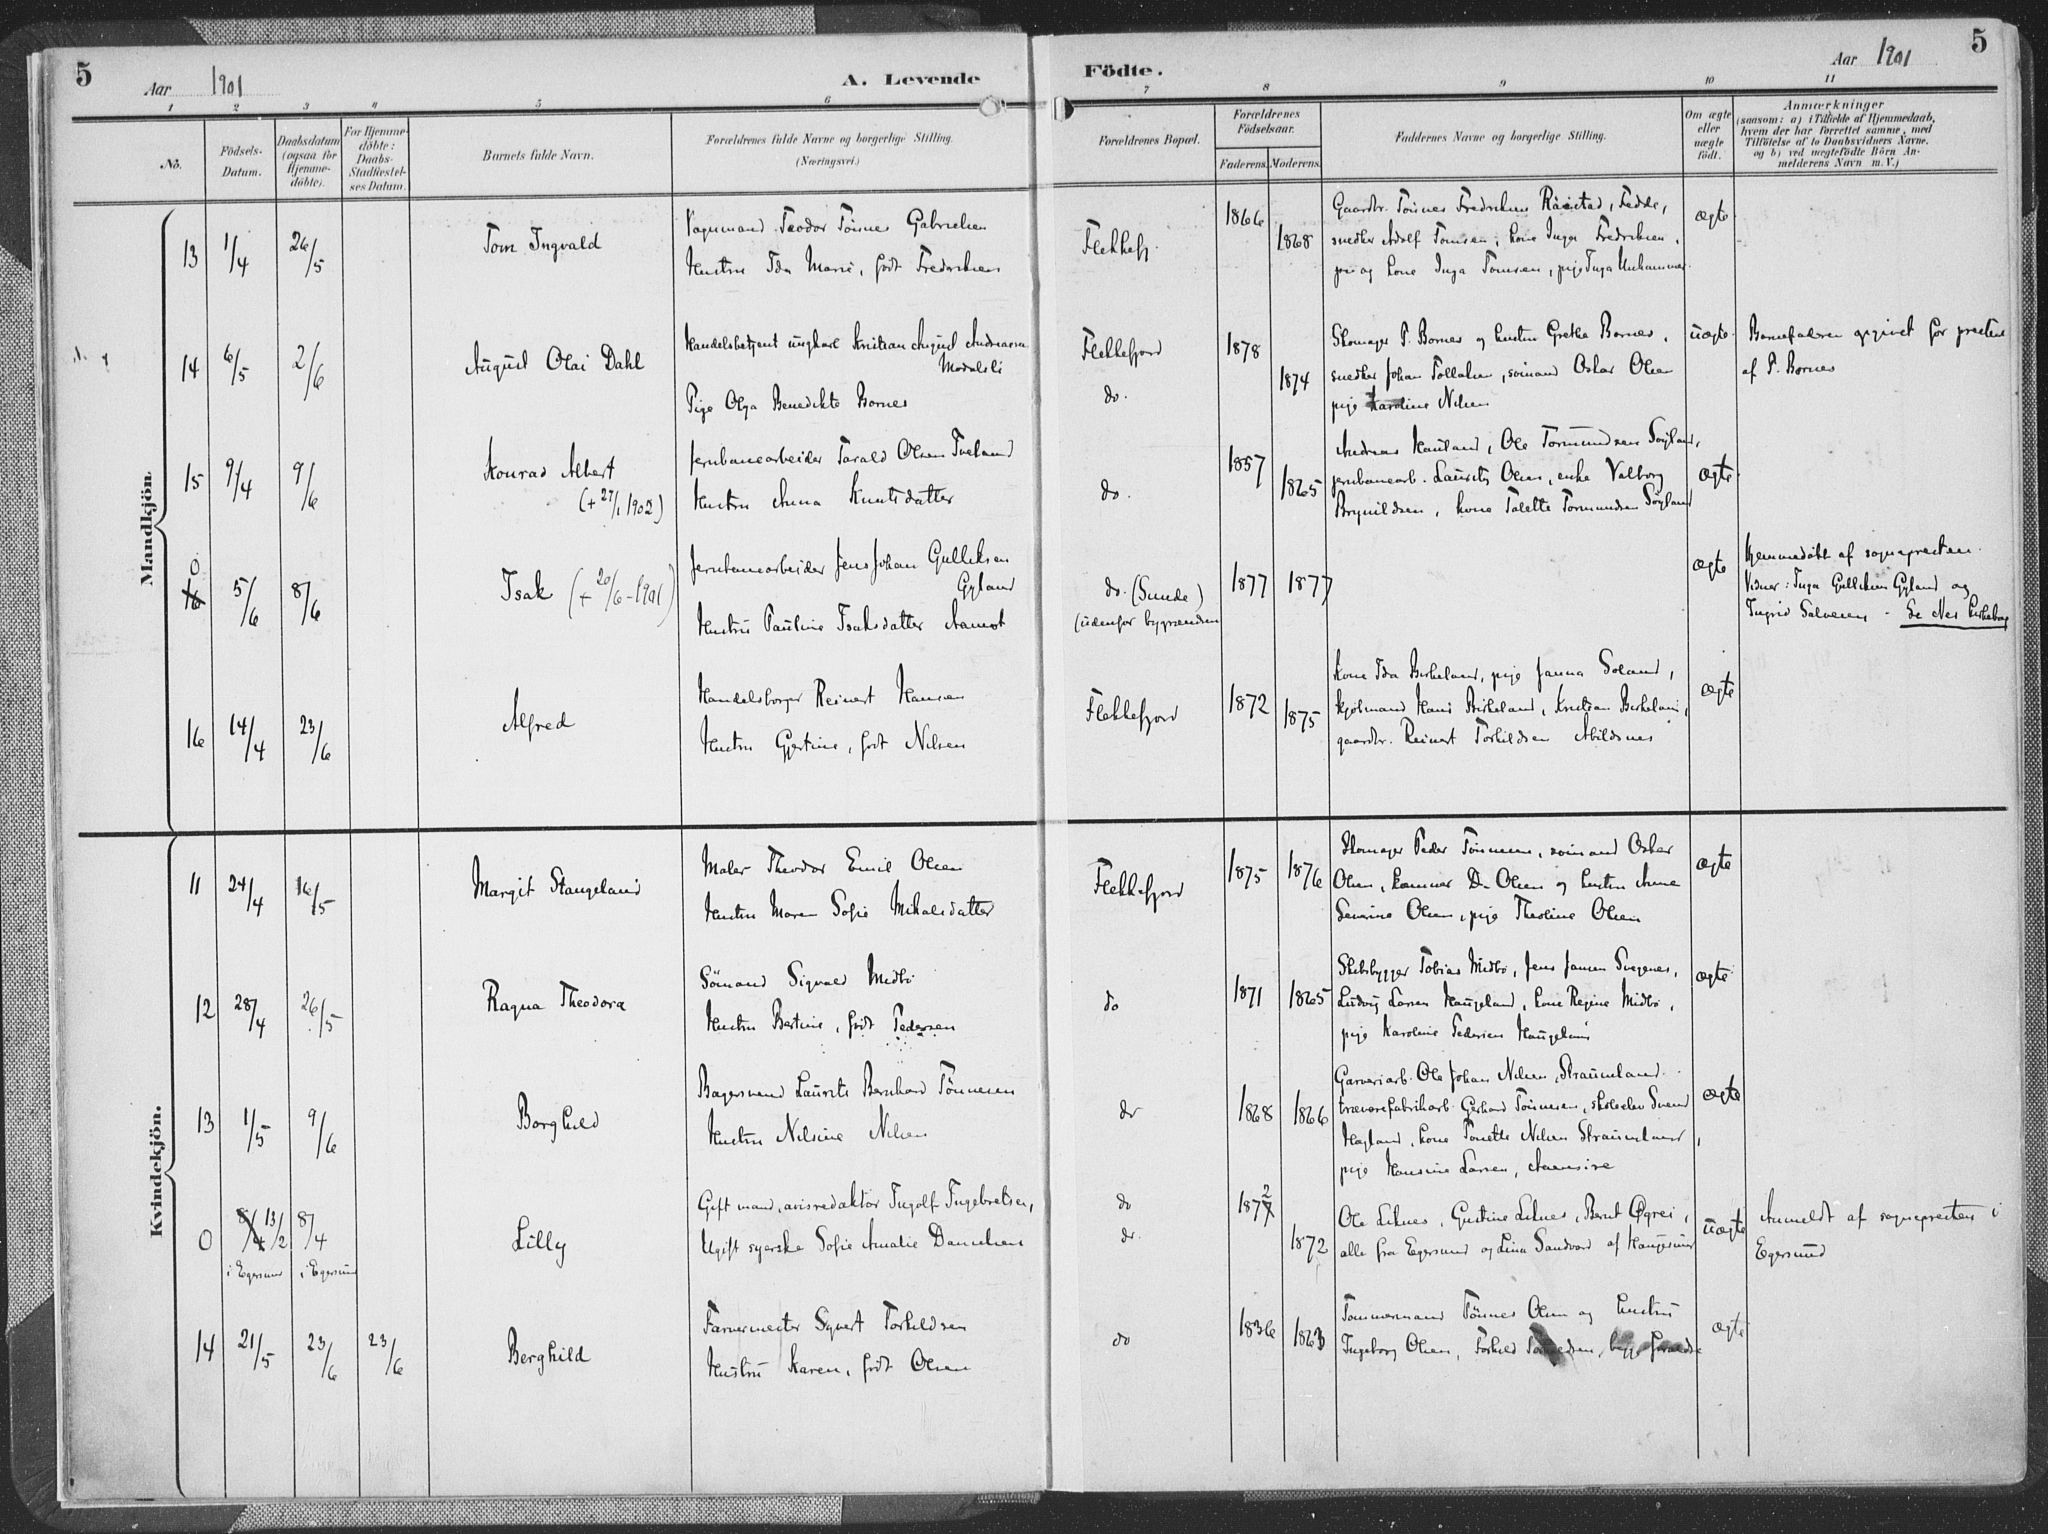 5
Aar 1901
A. Levende
Födte.
Aar 1901
5
1 2 3 4 5 6 7 8 9 10 11
No.
Födsels-
Datum.
Daabsdatum
(ogsaa for
Hjemme-
döbte).
For Hjemme-
döbte:
Daabs-
Stadfæstel-
ses Datum.
Barnets fulde Navn.
Forældrenes fulde Navne og borgerlige Stilling.
(Næringsvei.)
Forældrenes Bopæl.
Forældrenes
Födselsaar.
Faderens. Moderens.
Faddernes Navne og borgerlige Stilling.
Om ægte
eller
uægte
födt.
Anmærkninger
(saasom: a) i Tilfælde af Hjemmedaab,
hvem der har forrettet samme, med
Tilföielse af to Daabsvidners Navne.
og b) ved uægtefödte Börn An-
melderens Navn m. V.)
Mandkjön.
13 1/4 26/5
Tom Ingvald
Vognmand Teodor Tönnes Gabrielsen
Hustru Ida Marie, födt Fredriksen
Flekkefj.
1866 1868
Gaardbr. Tönnes Fredriksen Råestad, Fedde,
snedker Adolf Tomsen, kone Inga Fredriksen,
kone Inga Tomsen, pige Inga Unhammer.
ægte
14 6/5 2/6
August Olai Dahl
Handelsbetjent ungkarl Kristian August Andreassen
Modalsli
Pige Olga Benedikte Bornes
Flekkefjord
do.
1878 1874
Skomager P. Bornes og hustru Grethe Bornes,
snedker Johan Tollaksen, sömand Oskar Olsen
pige Karoline Nilsen
uægte
Barnefaderen opgivet for presten
af P. Bornes
15 9/4 9/6
Konrad Albert
(+ 27/1 1902)
Jernbanearbeider Tarald Olsen Tveland
Hustru Anna Knutsdatter
do.
1857 1865
Andreas Hauland, Ole Tormundsen Söyland,
jernbanearb. Laurits Olsen, enke Valborg
Brynildsen, kone Talette Tormundsen Söyland
ægte
0
16 5/6 8/6
Isak (+ 20/6 - 1901)
Jernbanearbeider Jens Johan Gulliksen
Gyland
Hustru Pauline Isaksdatter Aamot
do. (Sunde)
(udenfor bygrændsen
1877 1877
ægte
Hjemmedöbt af sognepresten.
Vidner: Inga Gulliksen Gyland og
Ingrid Salvesen - Se Nes kirkebog
16 14/4 23/6
Alfred
Handelsborger Reinert Hansen
Hustru Gjertine, födt Nilsen
Flekkefjord
1872 1875
Kone Ida Birkeland, pige Janna Soland,
kjölmand Hans Birkeland, Kristian Birkeland,
gaardbr. Reinert Torkildsen Abildsnes
ægte
Kvindekjön.
11 24/4 16/5
Margit Stangeland
Maler Theodor Emil Olsen
Hustru Maren Sofie Mikalsdatter
Flekkefjord
1875 1876
Skomager Peder Tönnesen, sömand Oskar
Olsen, D. Olsen og hustru Anne
Severine Olsen, pige Theoline Olsen
ægte
12 28/4 26/5
Ragna Theodora
Sömand Sigvald Midbö
Hustru Bertine, födt Pedersen
do
1871 1865
Skibsbygger Tobias Midbö, Jens Jansen Svegenes,
Ludvig Larsen Haugeland, kone Regine Midbö,
pige Karoline Pedersen Haugeland
ægte
13 1/5 9/6
Borghild
Bagersvend Laurits Bernhard Tönnesen
Hustru Nilsine Nilsen
do
1868 1866
Garveriarb. Ole Johan Nilsen Straumland
trævarefabrikarb. Gerhard Tönnesen, skoleelev Svend
Hagland, kone Tonette Nilsen Straumland,
pige Hansine Larsen, Aamsire
ægte
0 8/4 13/2 8/4
i Egersund i Egersund
Lilly
Gift mand, avisredaktör Ingolf Ingebretsen,
Ugift syerske Sofie Amalie Danielsen
do
do.
1872 1872
Ole Liknes, Gustine Liknes, Bernt Øgrei,
alle fra Egersund og Lina Sandvord af Haugesund
uægte
Anmeldt af sognepresten i
Egersund
14 21/5 23/6 23/6
Berghild
Farvermester Syvert Torkildsen
Hustru Karen, födt Olsen
do
1836 1863
Tømmermand Tönnes Olsen og hustru
Ingeborg Olsen, Torkild begge forældre
ægte